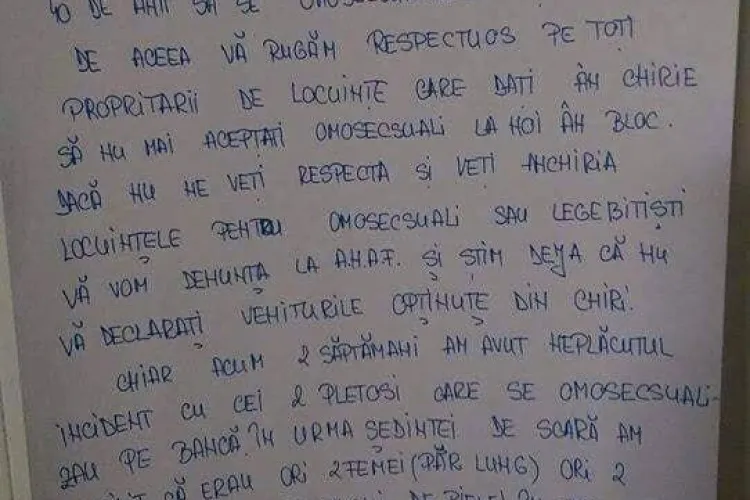 40 DE ANI SĂ SE
DE ACEEA VĂ RUGĂM RESPECTUOS PE TOȚI
PROPRITARII DE LOCUINȚE CARE DAȚI ÂN CHIRIE
SĂ NU MAI ACEPTAȚI OMOSECSUALI LA NOI ÂN BLOC.
DACĂ NU NE VEȚI RESPECTA SI VETI ÂNCHIRIA
LOCUINȚELE PENTRU OMOSECSUALI SAU LEGEBITIȘTI
VĂ VOM DENUNȚA LA A.N.A.F. ȘI ȘTIM DEJA CĂ NU
VĂ DECLARAȚI VENITURILE OPȚINUTE DIN CHIRI.
CHIAR ACUM 2 SĂPTĂMANI AM AVUT NEPLĂCUTUL
INCIDENT CU CEI 2 PLETOSI CARE SE OMOSECSUALI-
ZAU PE BANCĂ. ÎN URMA ȘEDINTEI DE SCARĂ AM
CĂ ERAU ORI 2 FEMEI (PĂR LUNG) ORI 2